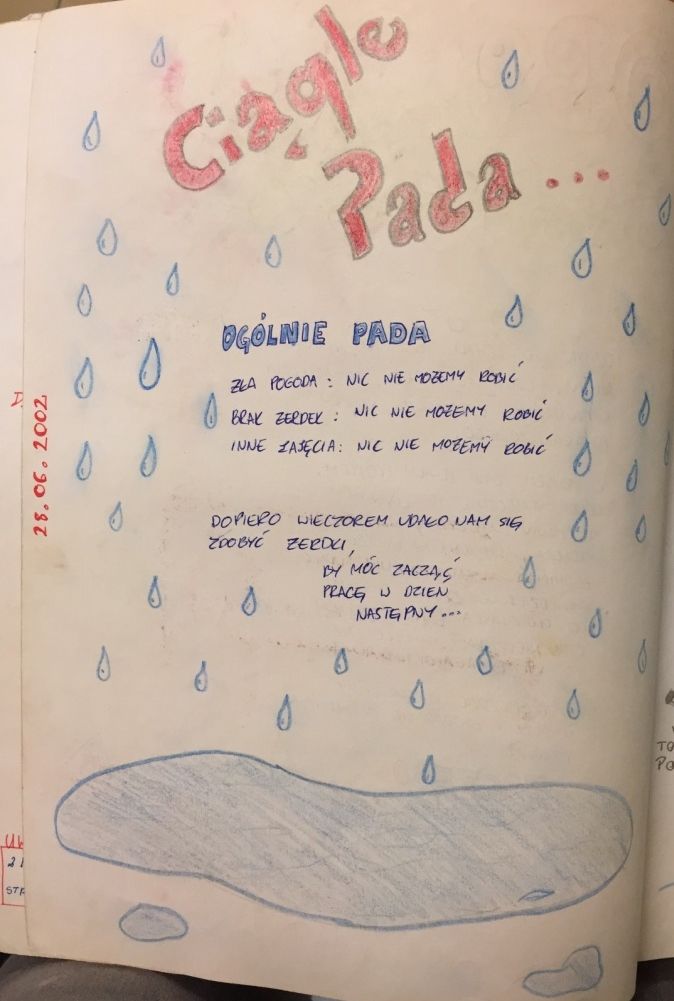 Ciągle
Pada...
28.06.2002
OGÓLNIE PADA
ZŁA POGODA : NIC NIE MOŻEMY ROBIĆ
BRAK ŻERDEK : NIC NIE MOŻEMY ROBIĆ
INNE ZAJĘCIA : NIC NIE MOŻEMY ROBIĆ
DOPIERO WIECZOREM UDAŁO NAM SIĘ
ZDOBYĆ ŻERDKI,
BY MÓC ZACZĄĆ
PRACĘ W DZIEŃ
NASTĘPNY...
TO
PO